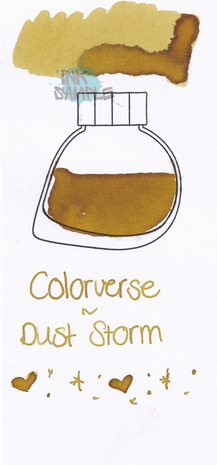 INK
SAMPLE
Colorverse
~
Dust Storm